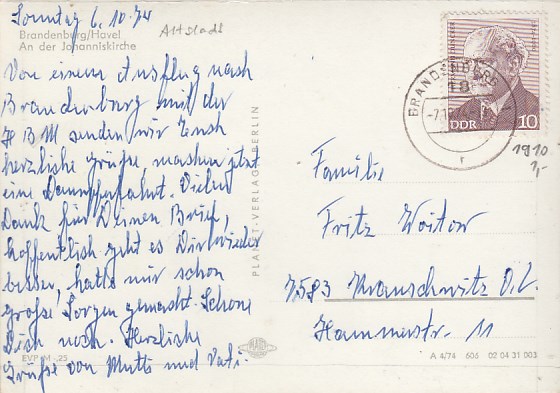 Sonntag 6.10.74
Altstadt
Brandenburg/Havel
An der Johanniskirche
Von einem Ausflug nach
Brandenburg mit der
BM senden wir Euch
herzliche Grüße, machen jetzt
eine Dampferfahrt. Vielen
Dank für Deinen Brief,
hoffentlich geht es Dir wieder
besser, hatte mir schon
große Sorgen gemacht. Schone
Dich noch. Herzliche
Grüße von Mutti und Vati.
EVP M -,25
PLANET-VERLAG BERLIN
BRANDENBURG
18
DDR 10
1910
1,-
Familie
Fritz Woitow
7583 Krauschwitz O.L.
Hammerstr. 11
A 4/74 606 02 04 31 003